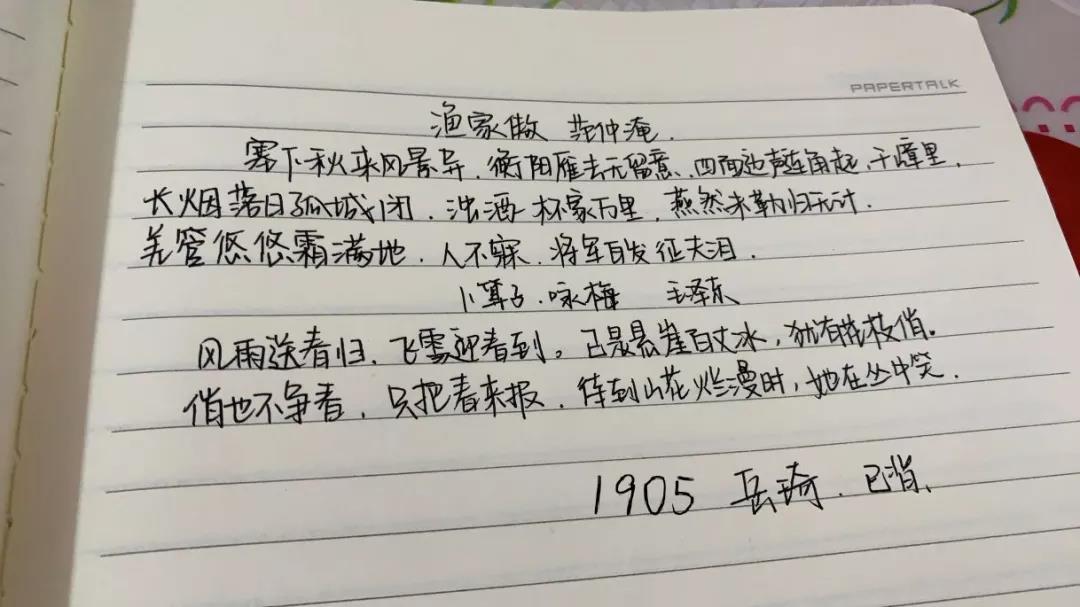 PAPERTALK
渔家傲 范仲淹.
塞下秋来风景异.衡阳雁去无留意.四面边声连角起.千嶂里.
长烟落日孤城闭.浊酒一杯家万里.燕然未勒归无计.
羌管悠悠霜满地.人不寐.将军白发征夫泪.
卜算子.咏梅 毛泽东
风雨送春归.飞雪迎春到。已是悬崖百丈冰,犹有花枝俏。
俏也不争春.只把春来报.待到山花烂漫时,她在丛中笑.
1905 岳琦.已背.